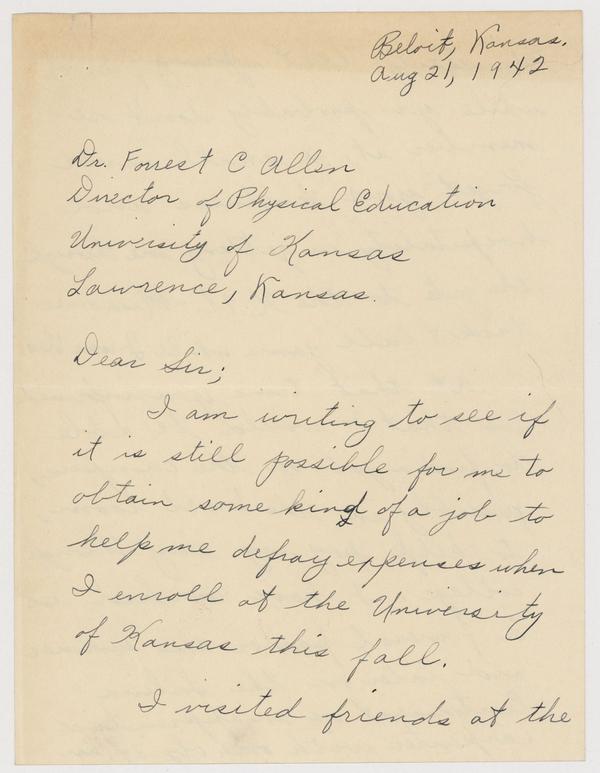 Beloit, Kansas.
Aug 21, 1942
Dr. Forrest C Allen
Director of Physical Education
University of Kansas
Lawrence, Kansas.
Dear Sir;
I am writing to see if
it is still possible for me to
obtain some kind of a job to
help me defray expenses when
I enroll at the University
of Kansas this fall.
I visited friends at the